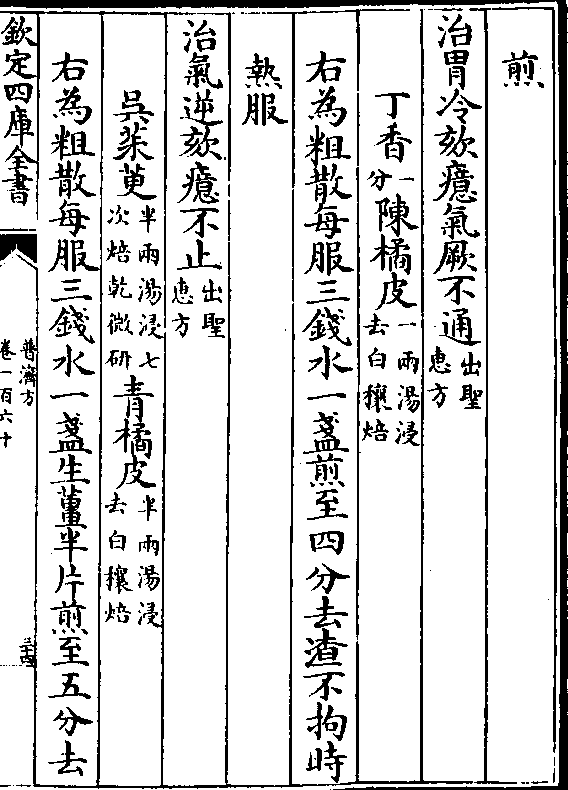 煎
治胃冷欬癔氣厥不通出聖惠方
丁香一分陳橘皮一兩湯浸去白穰焙
右為粗散每服三錢水一盞煎至四分去渣不拘時
熱服
治氣逆欬癔不止出聖惠方
吳茱萸半兩湯浸七次焙乾微研青橘皮半兩湯浸去白穰焙
右為粗散每服三錢水一盞生薑半片煎至五分去
欽定四庫全書
普濟方
卷一百六十
三十四